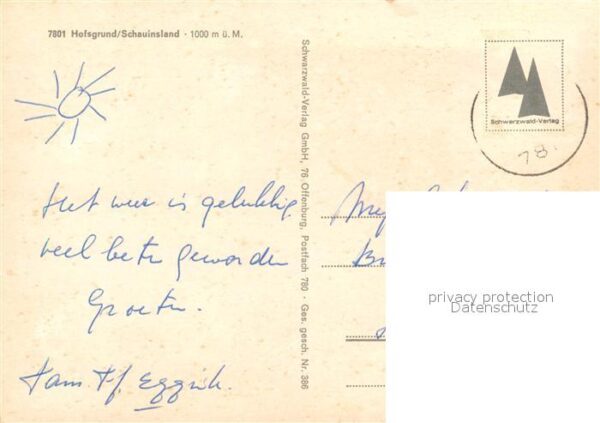 7801 Hofsgrund/Schauinsland · 1000 m ü. M.
Het weer is gelukkig
veel beter geworden
Groeten.
fam
Schwarzwald-Verlag GmbH, 76 Offenburg, Postfach 780 · Ges. gesch. Nr. 386
Schwarzwald-Verlag
78.
privacy protection
Datenschutz